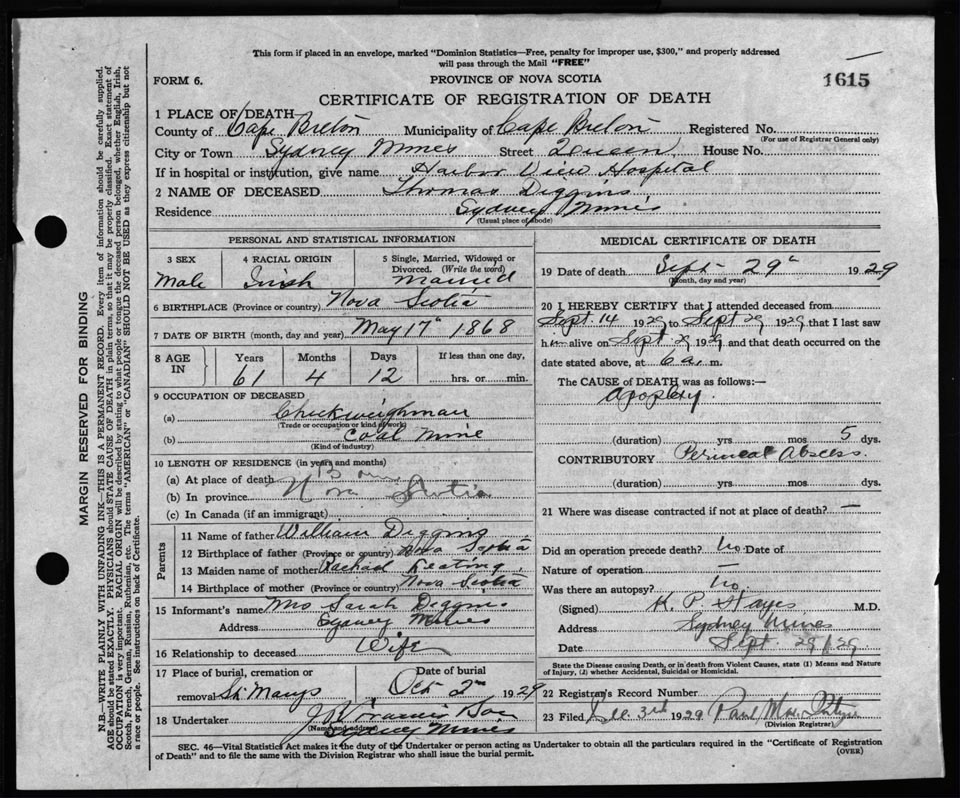 This form if placed in an envelope, marked "Dominion Statistics—Free, penalty for improper use, $300," and properly addressed
will pass through the Mail "FREE"
FORM 6.
PROVINCE OF NOVA SCOTIA
1615
CERTIFICATE OF REGISTRATION OF DEATH
1 PLACE OF DEATH
County of Cape Breton Municipality of Cape Breton Registered No.
(For use of Registrar General only)
City or Town Sydney Mines Street Queen House No.
If in hospital or institution, give name Harbor View Hospital
2 NAME OF DECEASED Thomas Diggins
Residence Sydney Mines
(Usual place of abode)
PERSONAL AND STATISTICAL INFORMATION
3 SEX
Male
4 RACIAL ORIGIN
Irish
5 Single, Married, Widowed or
Divorced. (Write the word)
Married
6 BIRTHPLACE (Province or country) Nova Scotia
7 DATE OF BIRTH (month, day and year) May 17th 1868
8 AGE
IN
Years
61
Months
4
Days
12
If less than one day,
hrs. or min.
9 OCCUPATION OF DECEASED
(a) Checkweighman
(Trade or occupation or kind of work)
(b) Coal Mine
(Kind of industry)
10 LENGTH OF RESIDENCE (in years and months)
(a) At place of death
(b) In province Nova Scotia
(c) In Canada (if an immigrant)
Parents
11 Name of father William Diggins
12 Birthplace of father (Province or country) Nova Scotia
13 Maiden name of mother Rachael Keating
14 Birthplace of mother (Province or country) Nova Scotia
15 Informant's name Mrs Sarah Diggins
Address Sydney Mines
16 Relationship to deceased Wife
17 Place of burial, cremation or
removal St. Marys
Date of burial
Oct 2nd 1929
18 Undertaker
(Name and address)
Sydney Mines
MEDICAL CERTIFICATE OF DEATH
19 Date of death Sept 29th 1929
(Month, day and year)
20 I HEREBY CERTIFY that I attended deceased from
Sept. 14 1929 to Sept 29 1929 that I last saw
him alive on Sept 29 1929 and that death occurred on the
date stated above, at 6 a. m.
The CAUSE of DEATH was as follows:—
Apoplexy.
(duration) yrs mos 5 dys.
CONTRIBUTORY Perineal Abscess.
(duration) yrs mos dys.
21 Where was disease contracted if not at place of death? —
Did an operation precede death? No Date of
Nature of operation —
Was there an autopsy? No
(Signed) K. P. Hayes M.D.
Address Sydney Mines
Date Sept. 29/29
State the Disease causing Death, or in death from Violent Causes, state (1) Means and Nature
of Injury, (2) whether Accidental, Suicidal or Homicidal.
22 Registrar's Record Number
23 Filed Dec. 3rd 1929
(Division Registrar)
SEC. 46—Vital Statistics Act makes it the duty of the Undertaker or person acting as Undertaker to obtain all the particulars required in the "Certificate of Registration
of Death" and to file the same with the Division Registrar who shall issue the burial permit.
(OVER)
MARGIN RESERVED FOR BINDING
N.B.—WRITE PLAINLY WITH UNFADING INK—THIS IS A PERMANENT RECORD. Every item of information should be carefully supplied.
AGE should be stated EXACTLY. PHYSICIANS should STATE CAUSE OF DEATH in plain terms, so that it may be properly classified. Exact statement of
OCCUPATION is very important. RACIAL ORIGIN will be described by stating to what people or tongue the deceased person belonged, whether English, Irish,
Scotch, French, German, Russian, Ruthenian, etc. The terms "AMERICAN" or "CANADIAN" SHOULD NOT BE USED as they express citizenship but not
a race or people. See instructions on back of Certificate.